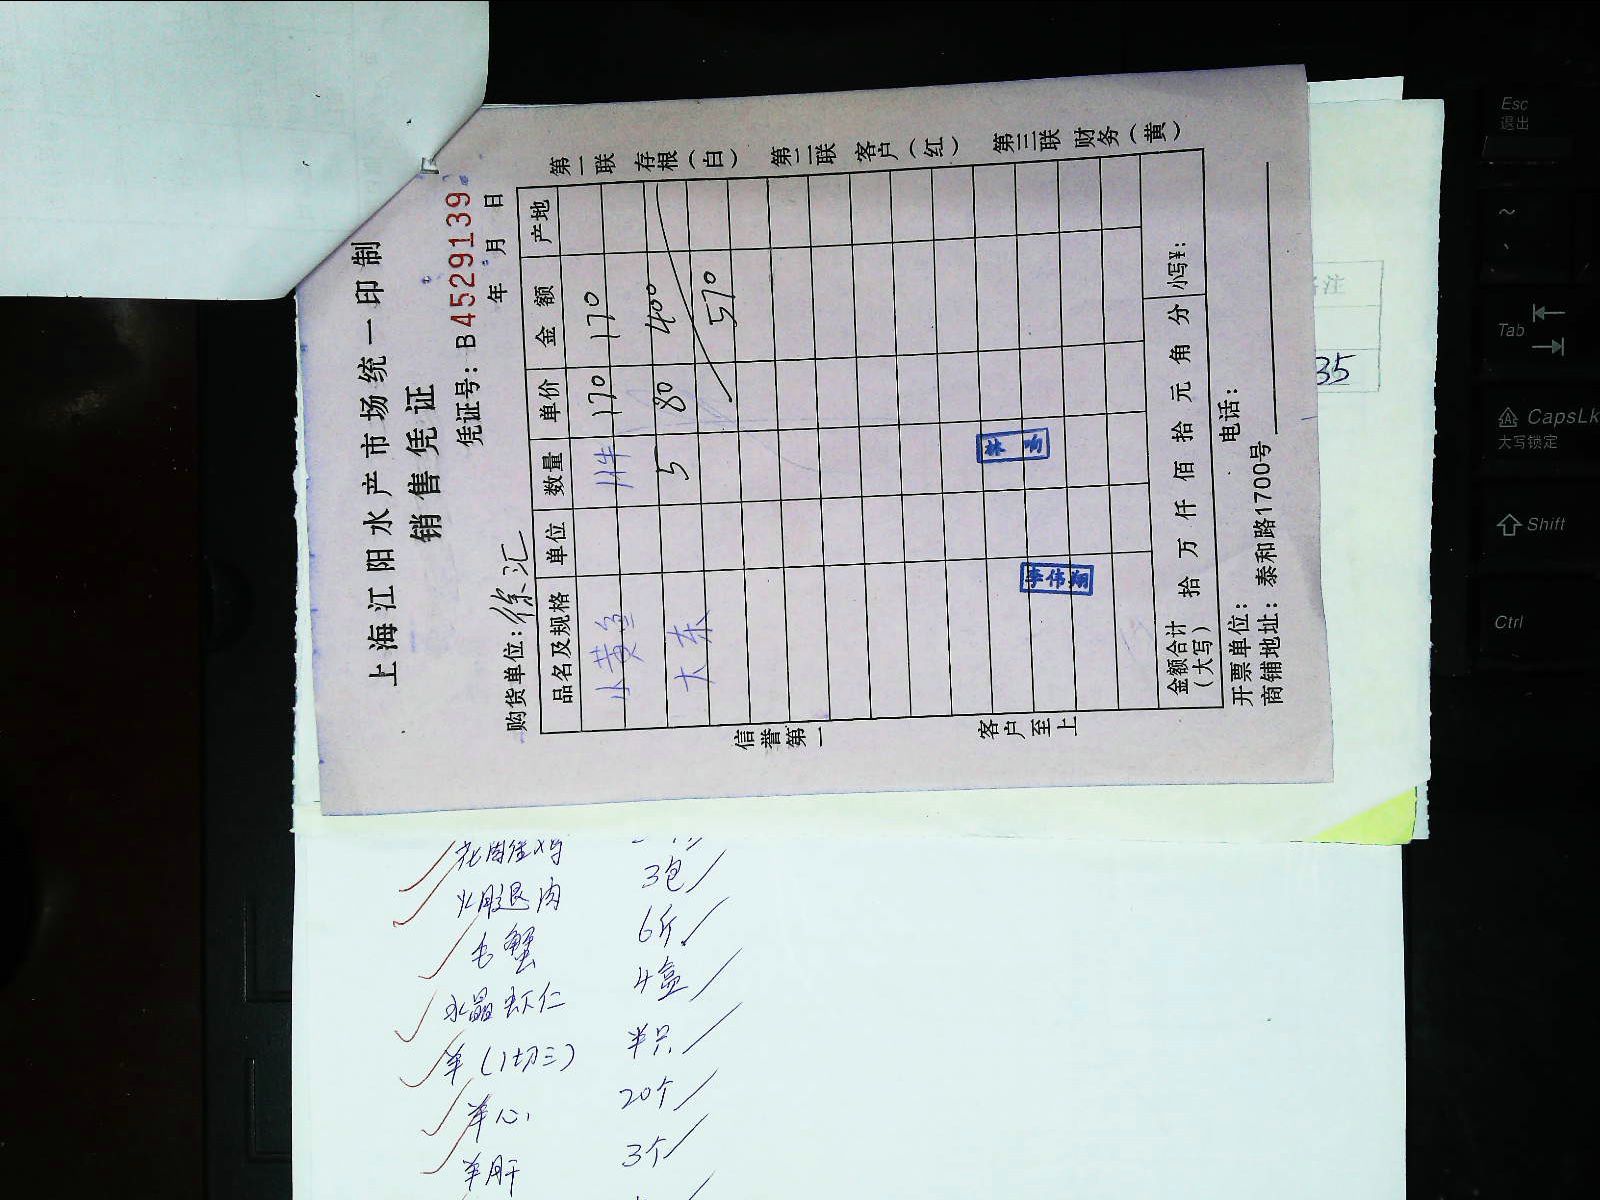 上海江阳水产市场统一印制
销售凭证
凭证号：B4529139
购货单位：徐汇
年 月 日
品名及规格 单位 数量 单价 金额 产地
小黄鱼 1件 170 170
大东 5 80 400
570
林
李伟翔
金额合计（大写） 拾 万 仟 佰 拾 元 角 分 小写¥：
开票单位： 电话：
商铺地址：泰和路1700号
第一联 存根（白） 第二联 客户（红） 第三联 财务（黄）
信誉第一 客户至上
35
3包
毛蟹 6斤
水晶虾仁 4盒
羊（1切三） 半只
羊心 20个
羊肝 3个
Esc
退出
~
Tab
CapsLk
大写锁定
Shift
Ctrl